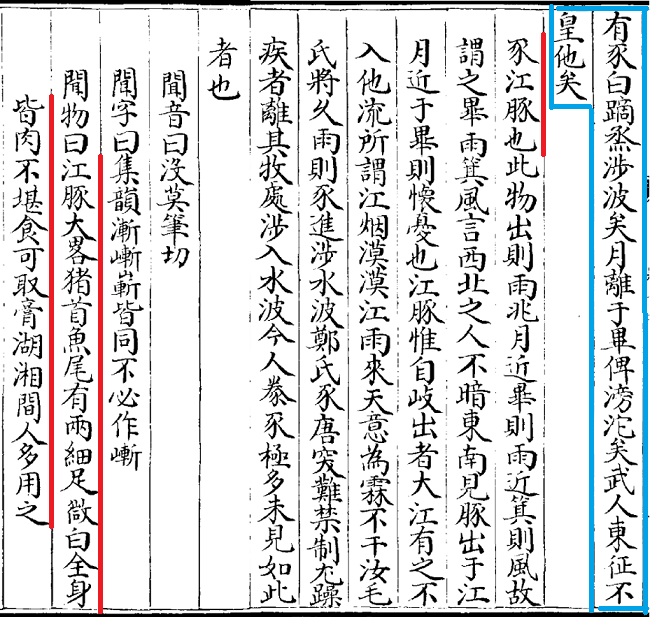 有豕白蹢烝涉波矣月離于畢俾滂沱矣武人東征不
皇他矣
豕江豚也此物出則雨兆月近畢則雨近箕則風故
謂之畢雨箕風言西北之人不暗東南見豚出于江
月近于畢則懷憂也江豚惟自岐出者大江有之不
入他流所謂江烟漠漠江雨來天意為霖不干汝毛
氏將久雨則豕進涉水波鄭氏豕唐突難禁制尤躁
疾者離其牧處涉入水波今人豢豕極多未見如此
者也
聞音曰沒莫筆切
聞字曰集韻漸嶃嶄皆同不必作嶃
聞物曰江豚大畧猪首魚尾有兩細足微白全身
皆肉不堪食可取膏湖湘間人多用之